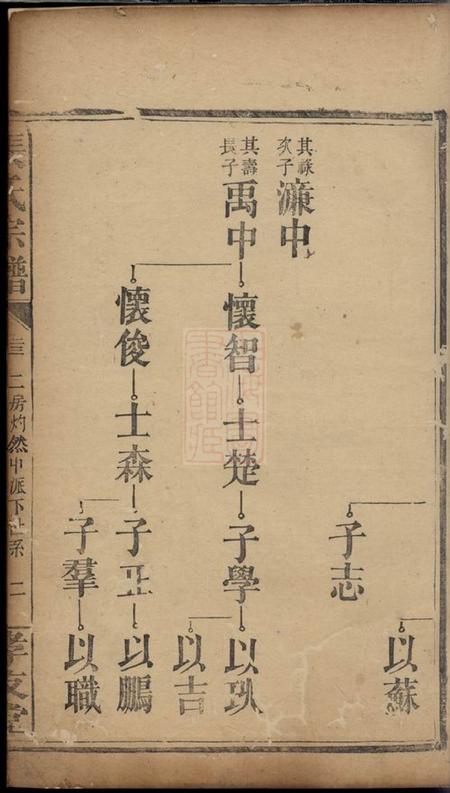 以蘇
子志
其祿次子
濂中
其壽長子
禹中
懷智
士楚
子學
以
以吉
懷俊
士森
子正
以鵬
子羣
以職
氏宗譜
二房灼然中派下世系
二
孝友堂